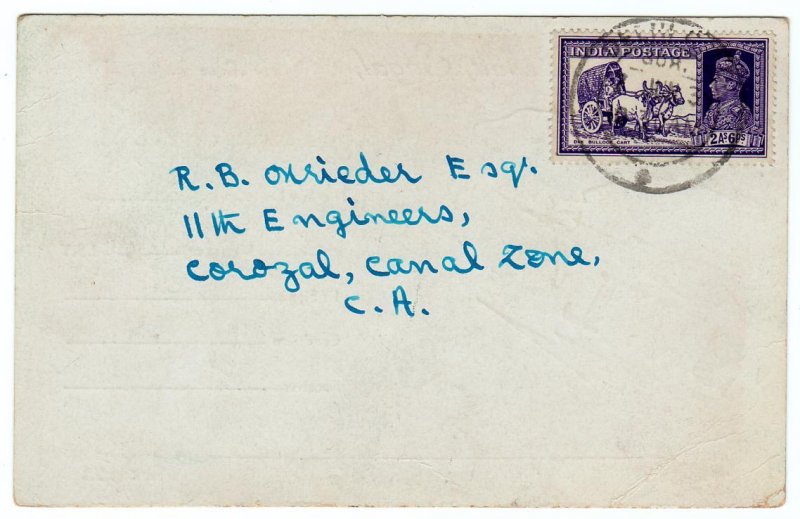 INDIA POSTAGE
DAK BULLOCK CART
2As6ps
R.B. Okrieder Esqr.
11th Engineers,
Corozal, Canal Zone,
C.A.